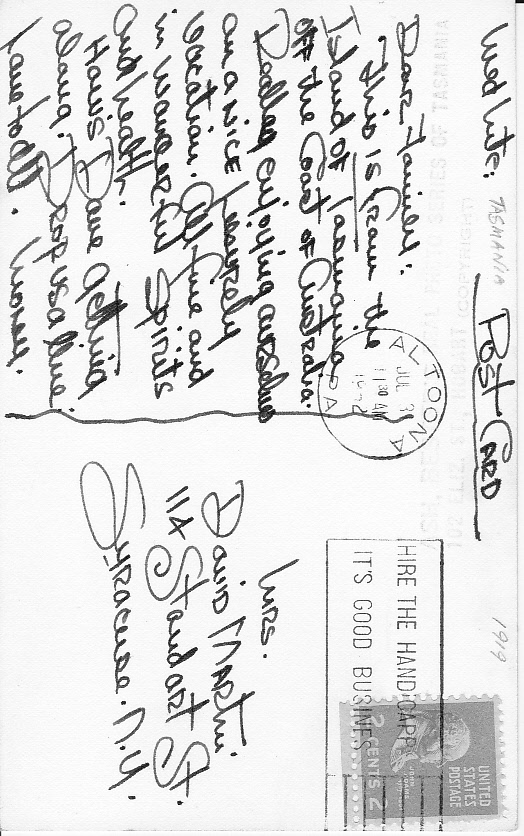 Wed Nite:
TASMANIA
POST CARD
Dear Family:
This is from the
Island of Tasmania
off the Coast of Australia.
enjoying ourselves
on a nice leisurely
vacation. All fine and
in wonderful Spirits
and health.
Dave getting
along? Drop us a line.
Love to all.
ALTOONA
JUL 3
11 30 AM
PA
HIRE THE HANDICAPP
IT'S GOOD BUSINES
1919
UNITED
STATES
POSTAGE
2 CENTS 2
Mrs.
David Martin.
114 Standart St.
Syracuse. N.Y.
SERIES OF TASMANIA
(COPYRIGHT)